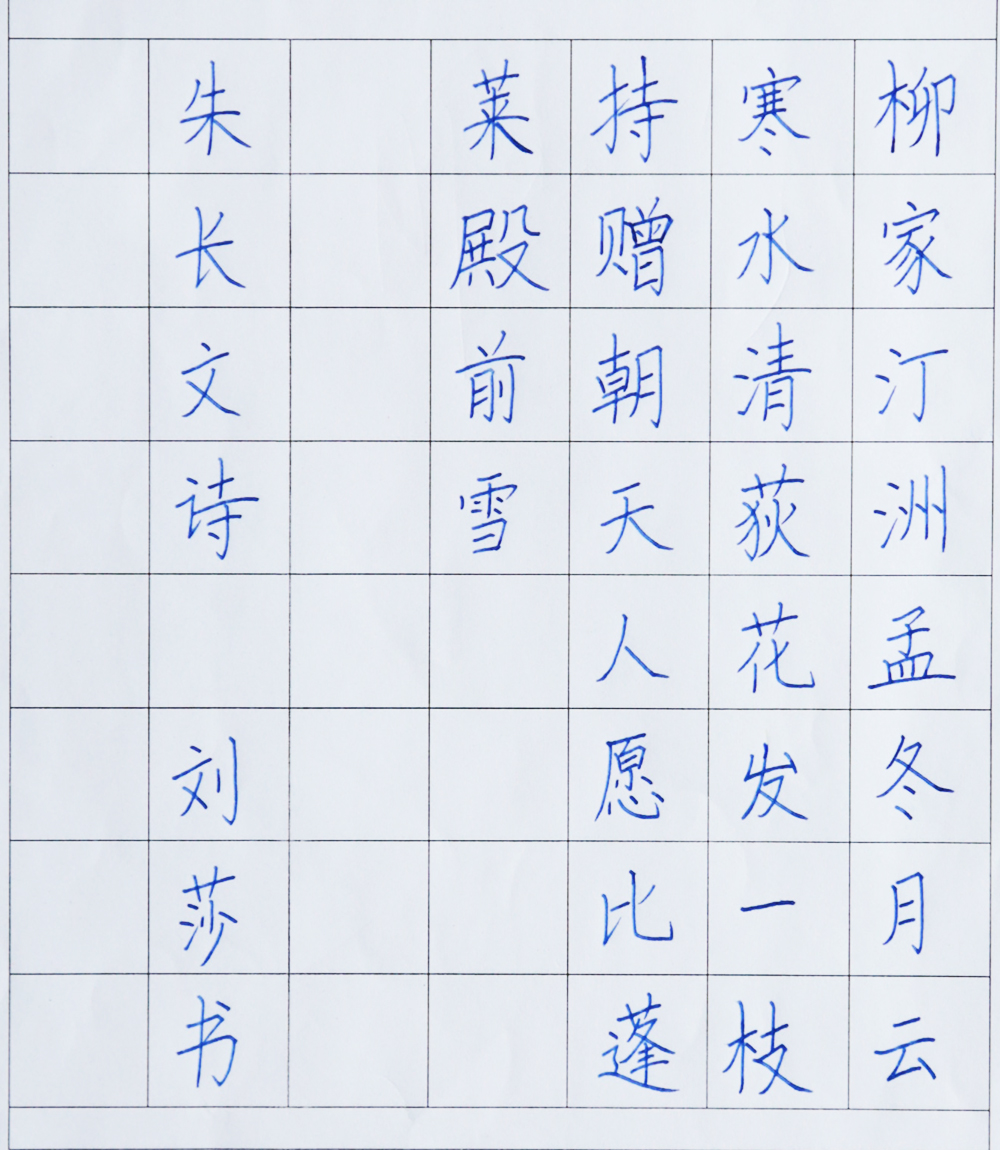 柳家汀洲孟冬月云
寒水清荻花发一枝
持赠朝天人愿比蓬
莱殿前雪
朱长文诗 刘莎书